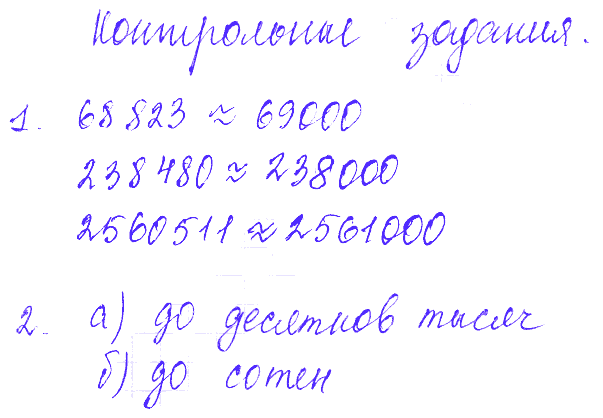 Контрольные задания.
1. 68823 ≈ 69000
238480 ≈ 238000
2560511 ≈ 2561000
2. а) до десятков тысяч
б) до сотен